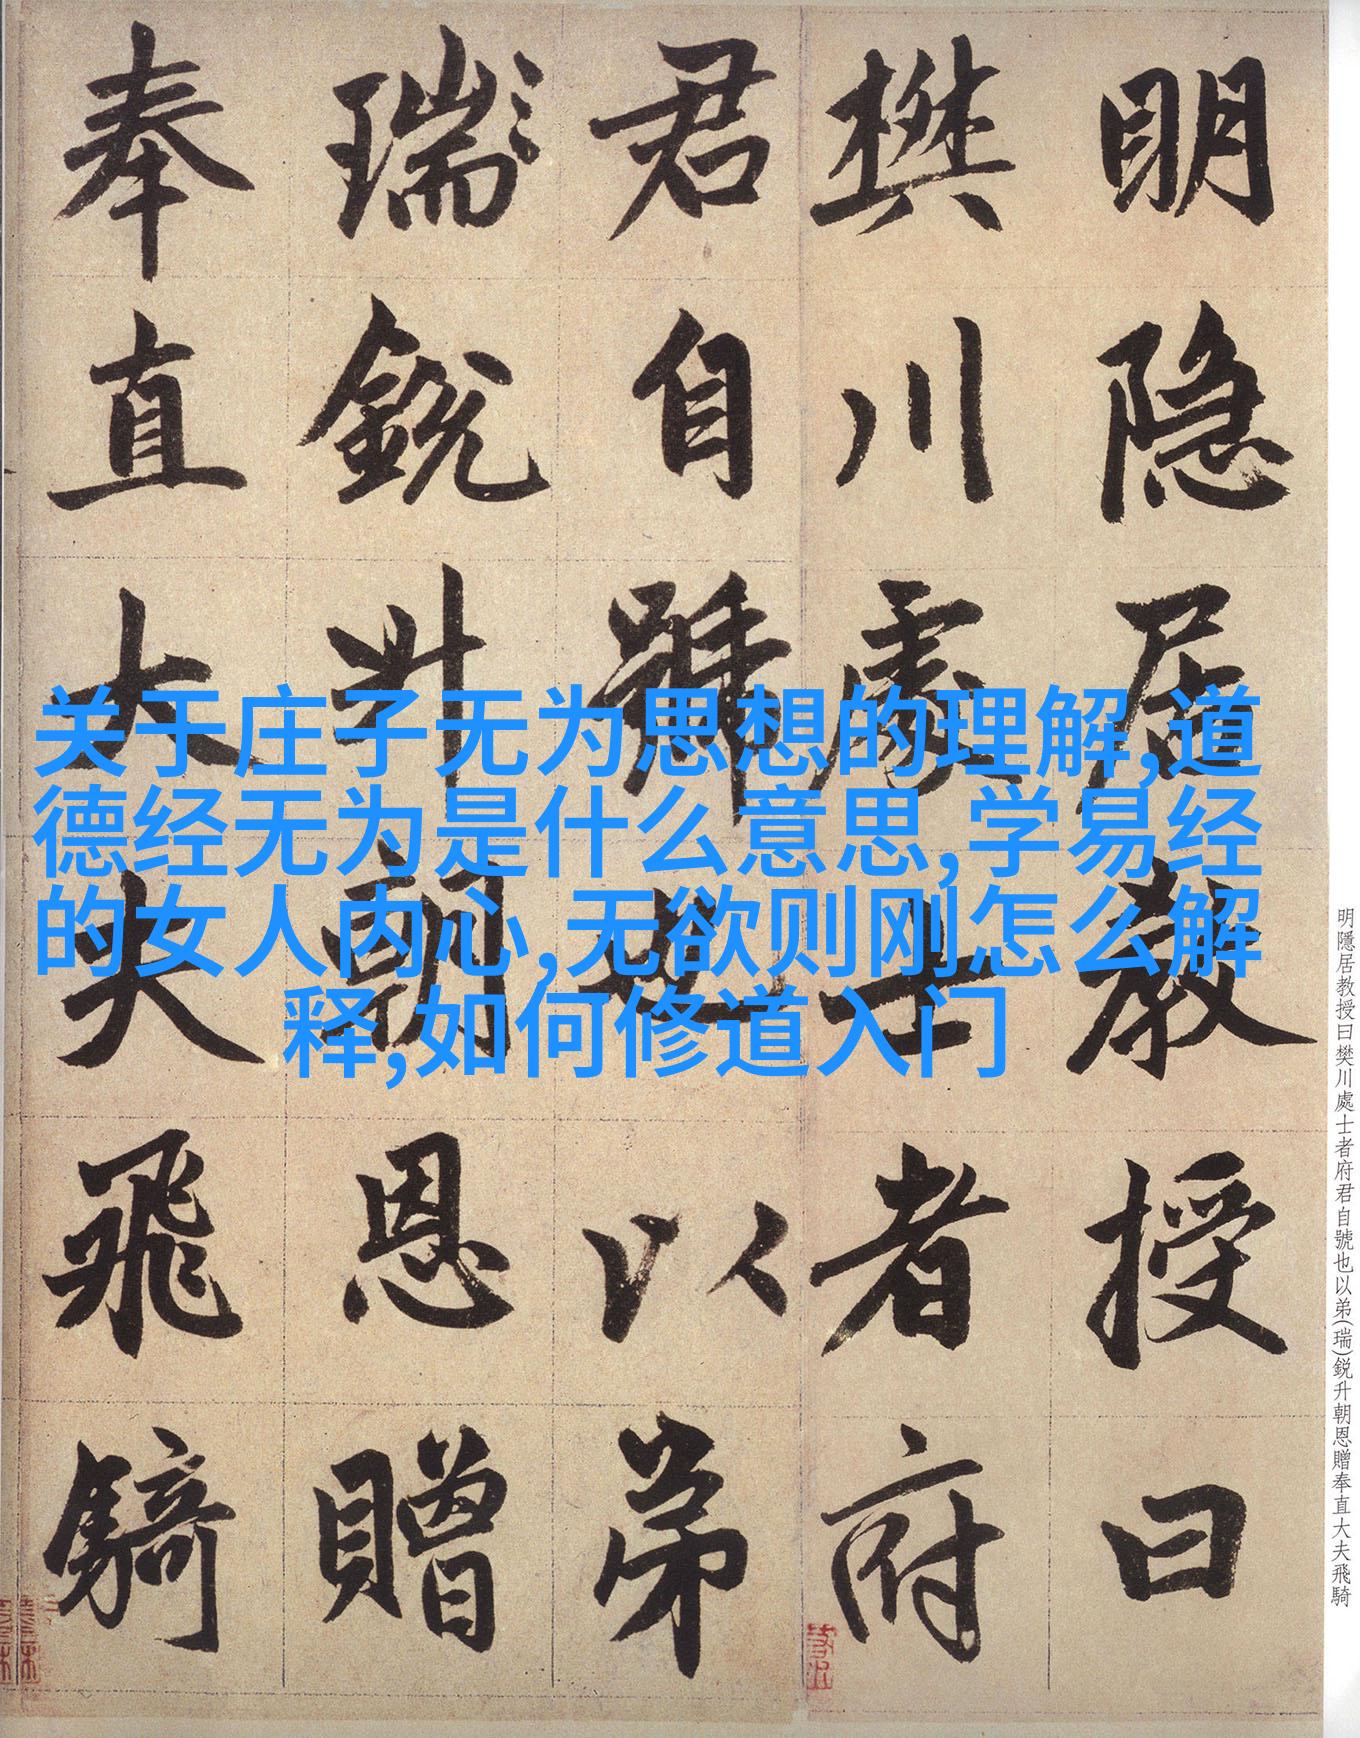 明隐居教授曰
樊川處士者府
君自號也以弟
瑞銳升朝恩贈
奉直大夫飛騎
关于庄子无为思想的理解,道
德经无为是什么意思,学易经
的女人内心,无欲则刚怎么解
释,如何修道入门
明隱居教授曰樊川處士者府君自號也以弟(瑞)銳升朝恩贈奉直大夫飛騎